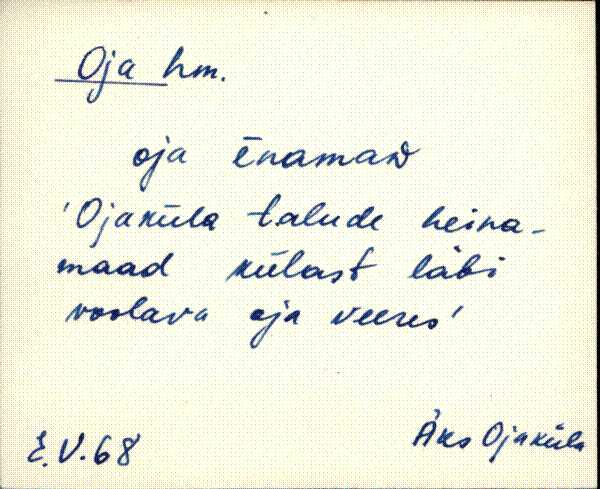 Oja hm.
oja ēnamaD
'Ojaküla talude heina-
maad külast läbi
voolava oja veeres'
E.V.68
Äks Ojaküla